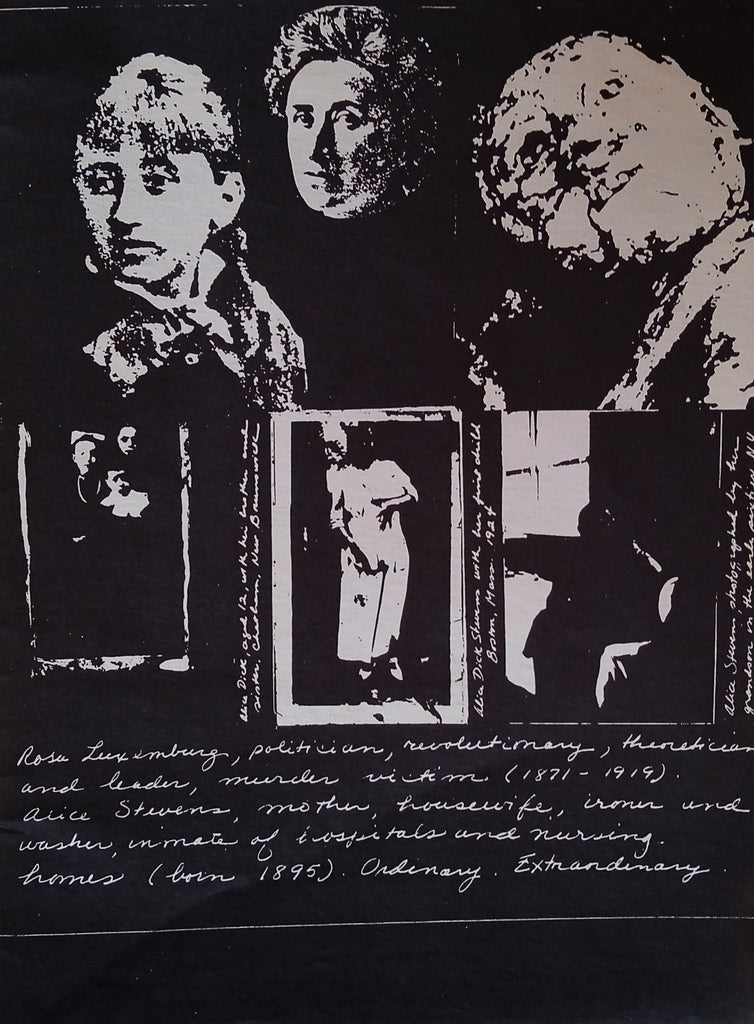 Alice Dick, aged 12, with her brother and
sister, Chatham, New Brunswick
Alice Dick Stevens with her first child
Boston, Mass. 1924
Alice Stevens photographed by her
grandson in the
Rosa Luxemburg, politician, revolutionary, theoretician
and leader, murder victim (1871-1919).
Alice Stevens, mother, housewife, ironer and
washer, inmate of hospitals and nursing
homes (born 1895). Ordinary. Extraordinary.